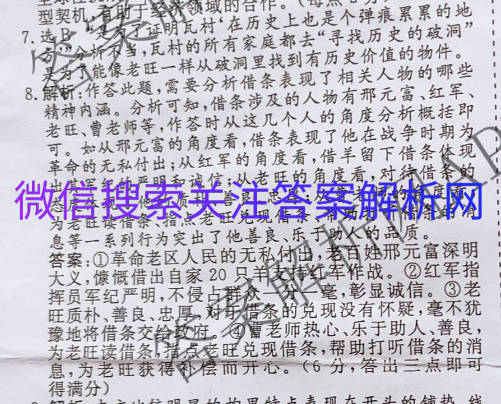 型契机,有助于经济领域的合作。(每点
7.选B "是为了证明瓦村'在历史上也是个弹痕累累的地
方'"分析不当,瓦村的所有家庭都去"寻找历史的破洞"
是为了能像老旺一样从破洞里找到有历史价值的物件。
8.解析:作答此题,需要分析借条表现了相关人物的哪些
精神内涵。分析可知,借条涉及的人物有邢元富、红军、
老旺、曹老师等,作答时从这几个人的角度分析概括即
可。如从邢元富的角度看,借条表现了他在战争时期为
革命的无私付出;从红军的角度看,借羊留下借条体现
严明和诚信;从老旺的角度看,对于借条的
微信搜索关注答案解析网
为老旺读借条、指点老旺兑现借条、
息等一系列行为突出了他善良、乐于助人的品质。
答案:①革命老区人民的无私付出,老百姓邢元富深明
大义,慷慨借出自家20只羊支持红军作战。②红军指
挥员军纪严明,不侵占群众一分一毫,彰显诚信。③老
旺质朴、善良、忠厚,对于借条的兑现没有怀疑,毫不犹
豫地将借条交给政府。④曹老师热心、乐于助人、善良,
为老旺读借条,指点老旺兑现借条,帮助打听借条的消
息,为老旺获得补偿而开心。(6分,答出三点即可
得满分)